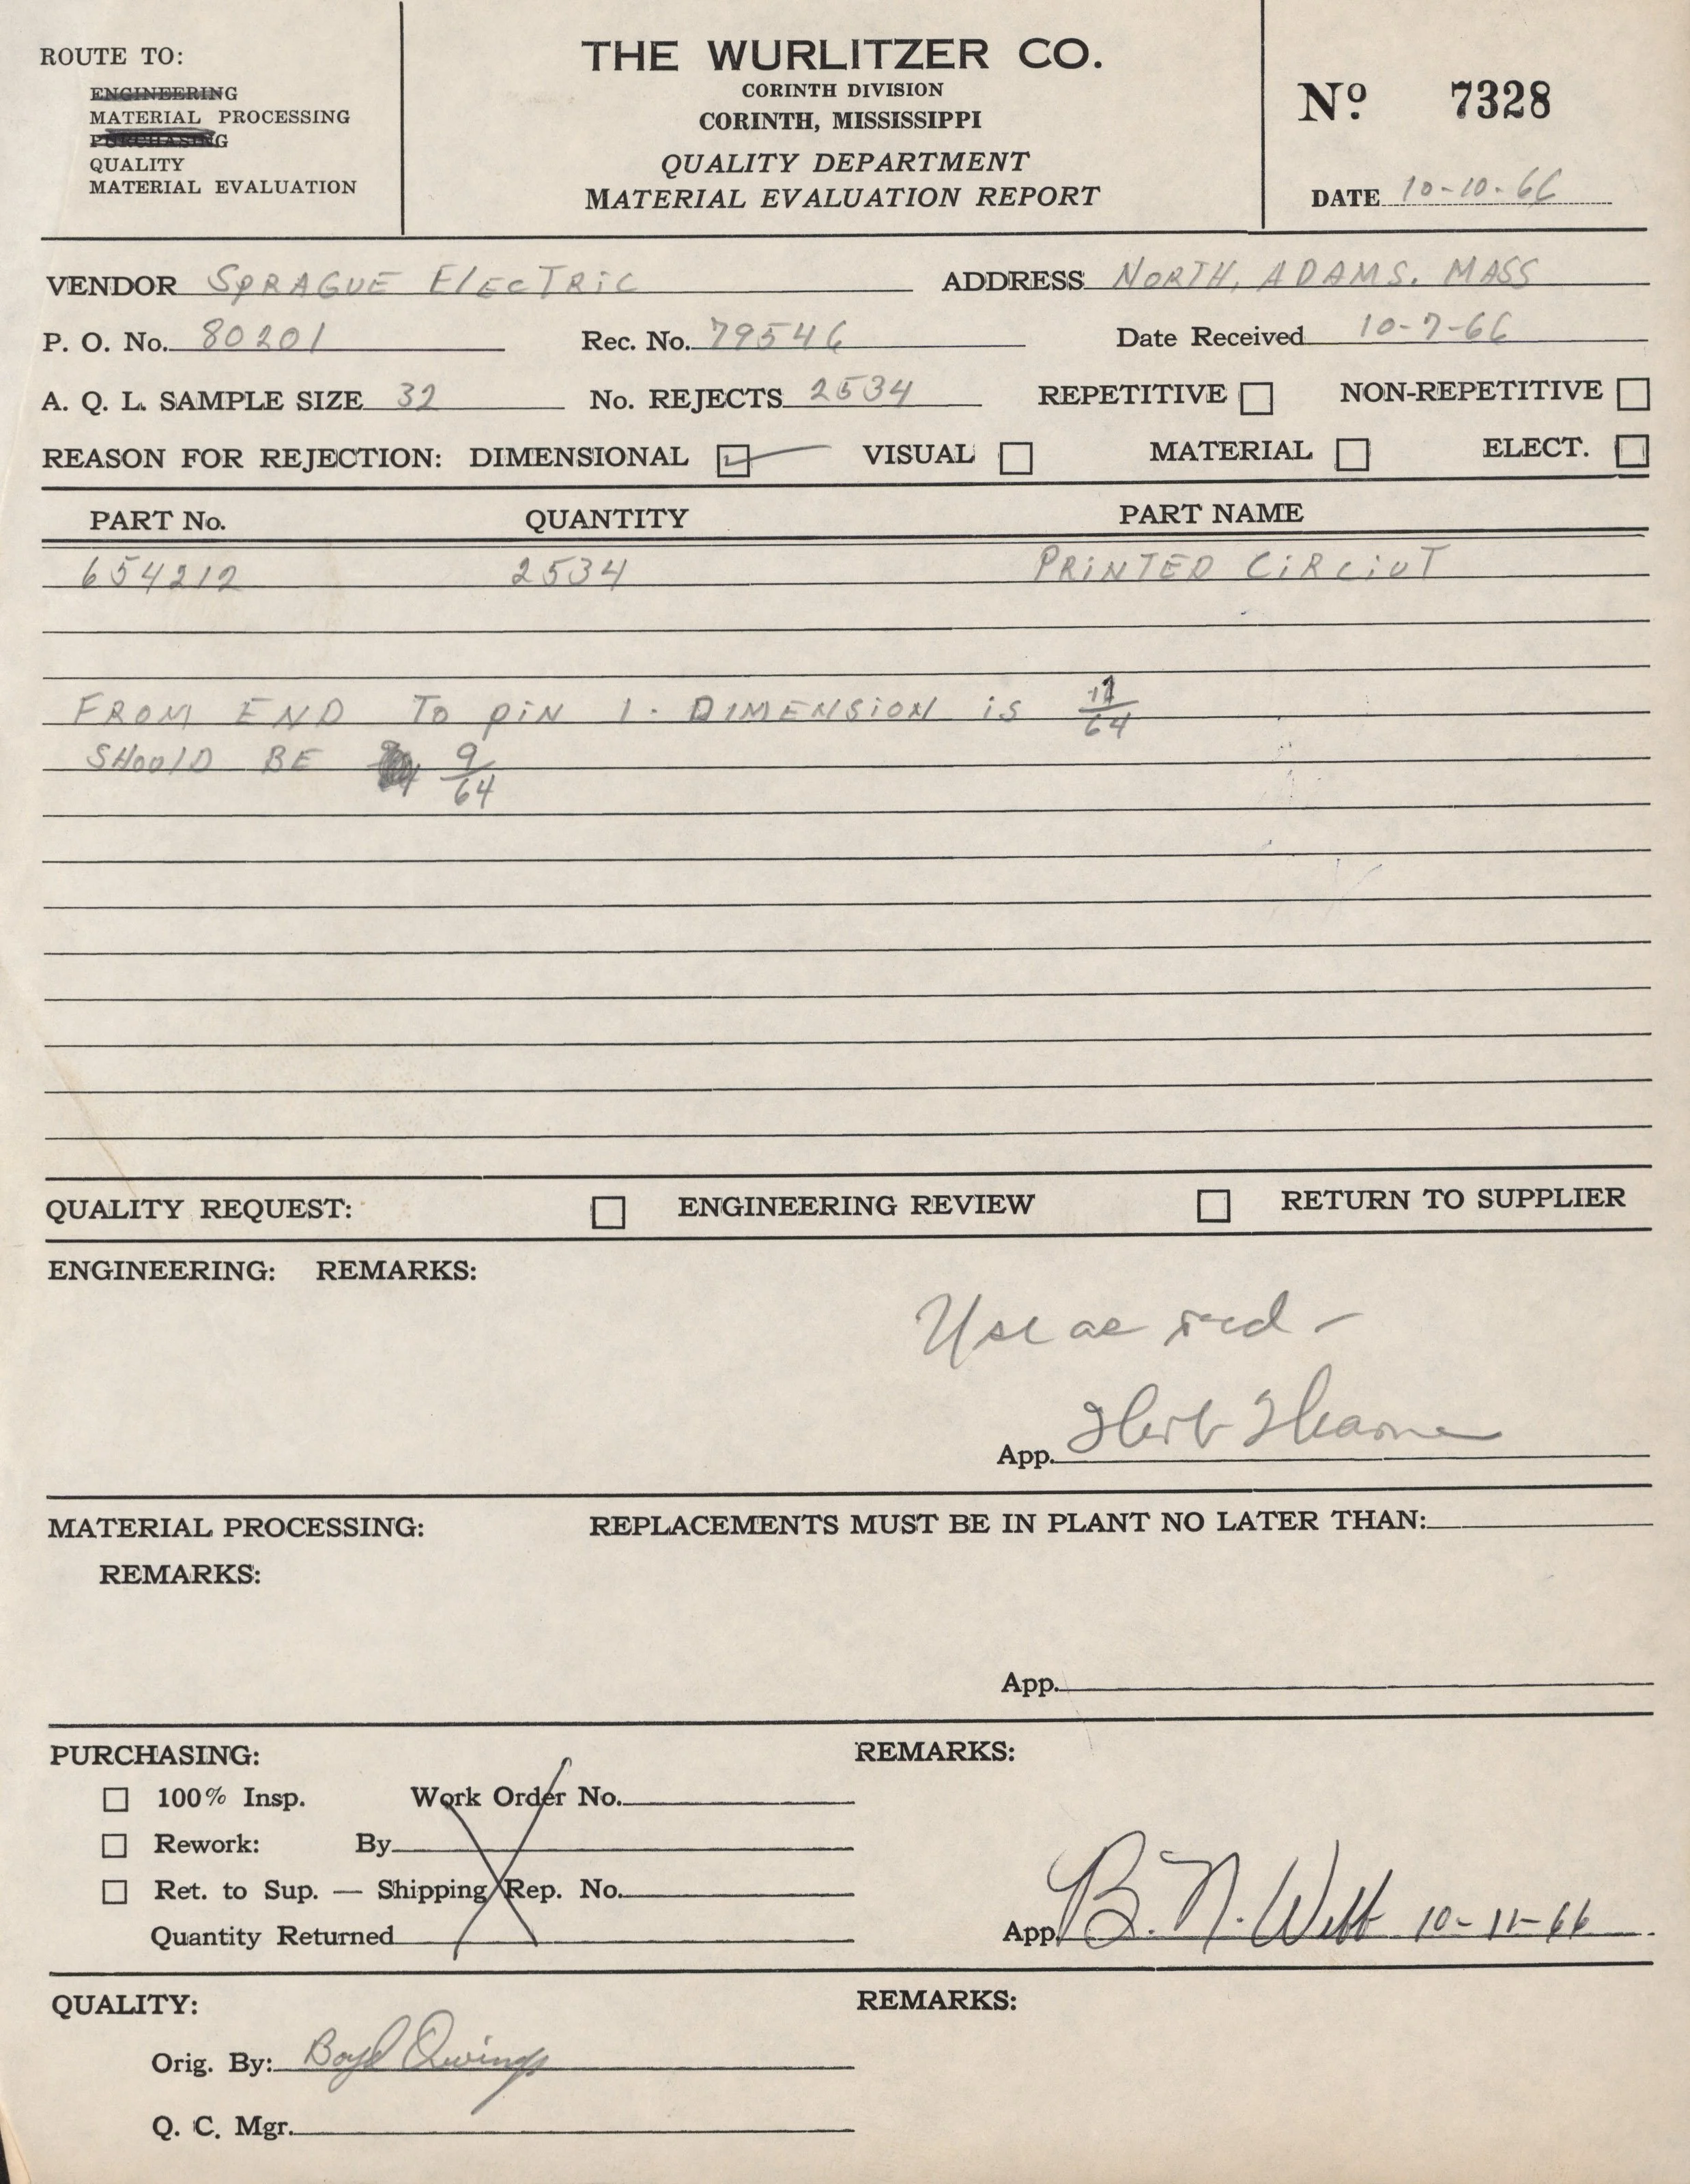 ROUTE TO:
ENGINEERING
MATERIAL PROCESSING
PURCHASING
QUALITY
MATERIAL EVALUATION
THE WURLITZER CO.
CORINTH DIVISION
CORINTH, MISSISSIPPI
QUALITY DEPARTMENT
MATERIAL EVALUATION REPORT
Nº 7328
DATE 10-10-66
VENDOR SPRAGUE ElECTRiC ADDRESS NORTH, ADAMS. MASS
P. O. No. 80201 Rec. No. 79546 Date Received 10-7-66
A. Q. L. SAMPLE SIZE 32 No. REJECTS 2534 REPETITIVE NON-REPETITIVE
REASON FOR REJECTION: DIMENSIONAL VISUAL MATERIAL ELECT.
PART No. QUANTITY PART NAME
654212 2534 PRiNTED CiRCiUT
FROM END To piN 1. DIMENSiON is /64
SHOUlD BE 9/64
QUALITY REQUEST: ENGINEERING REVIEW RETURN TO SUPPLIER
ENGINEERING: REMARKS:
Use as
App. Herb
MATERIAL PROCESSING: REPLACEMENTS MUST BE IN PLANT NO LATER THAN:
REMARKS:
App.
PURCHASING: REMARKS:
100% Insp. Work Order No.
Rework: By
Ret. to Sup. — Shipping Rep. No.
Quantity Returned
App. B. N. Webb 10-11-66
QUALITY: REMARKS:
Orig. By: Boyd Owings
Q. C. Mgr.